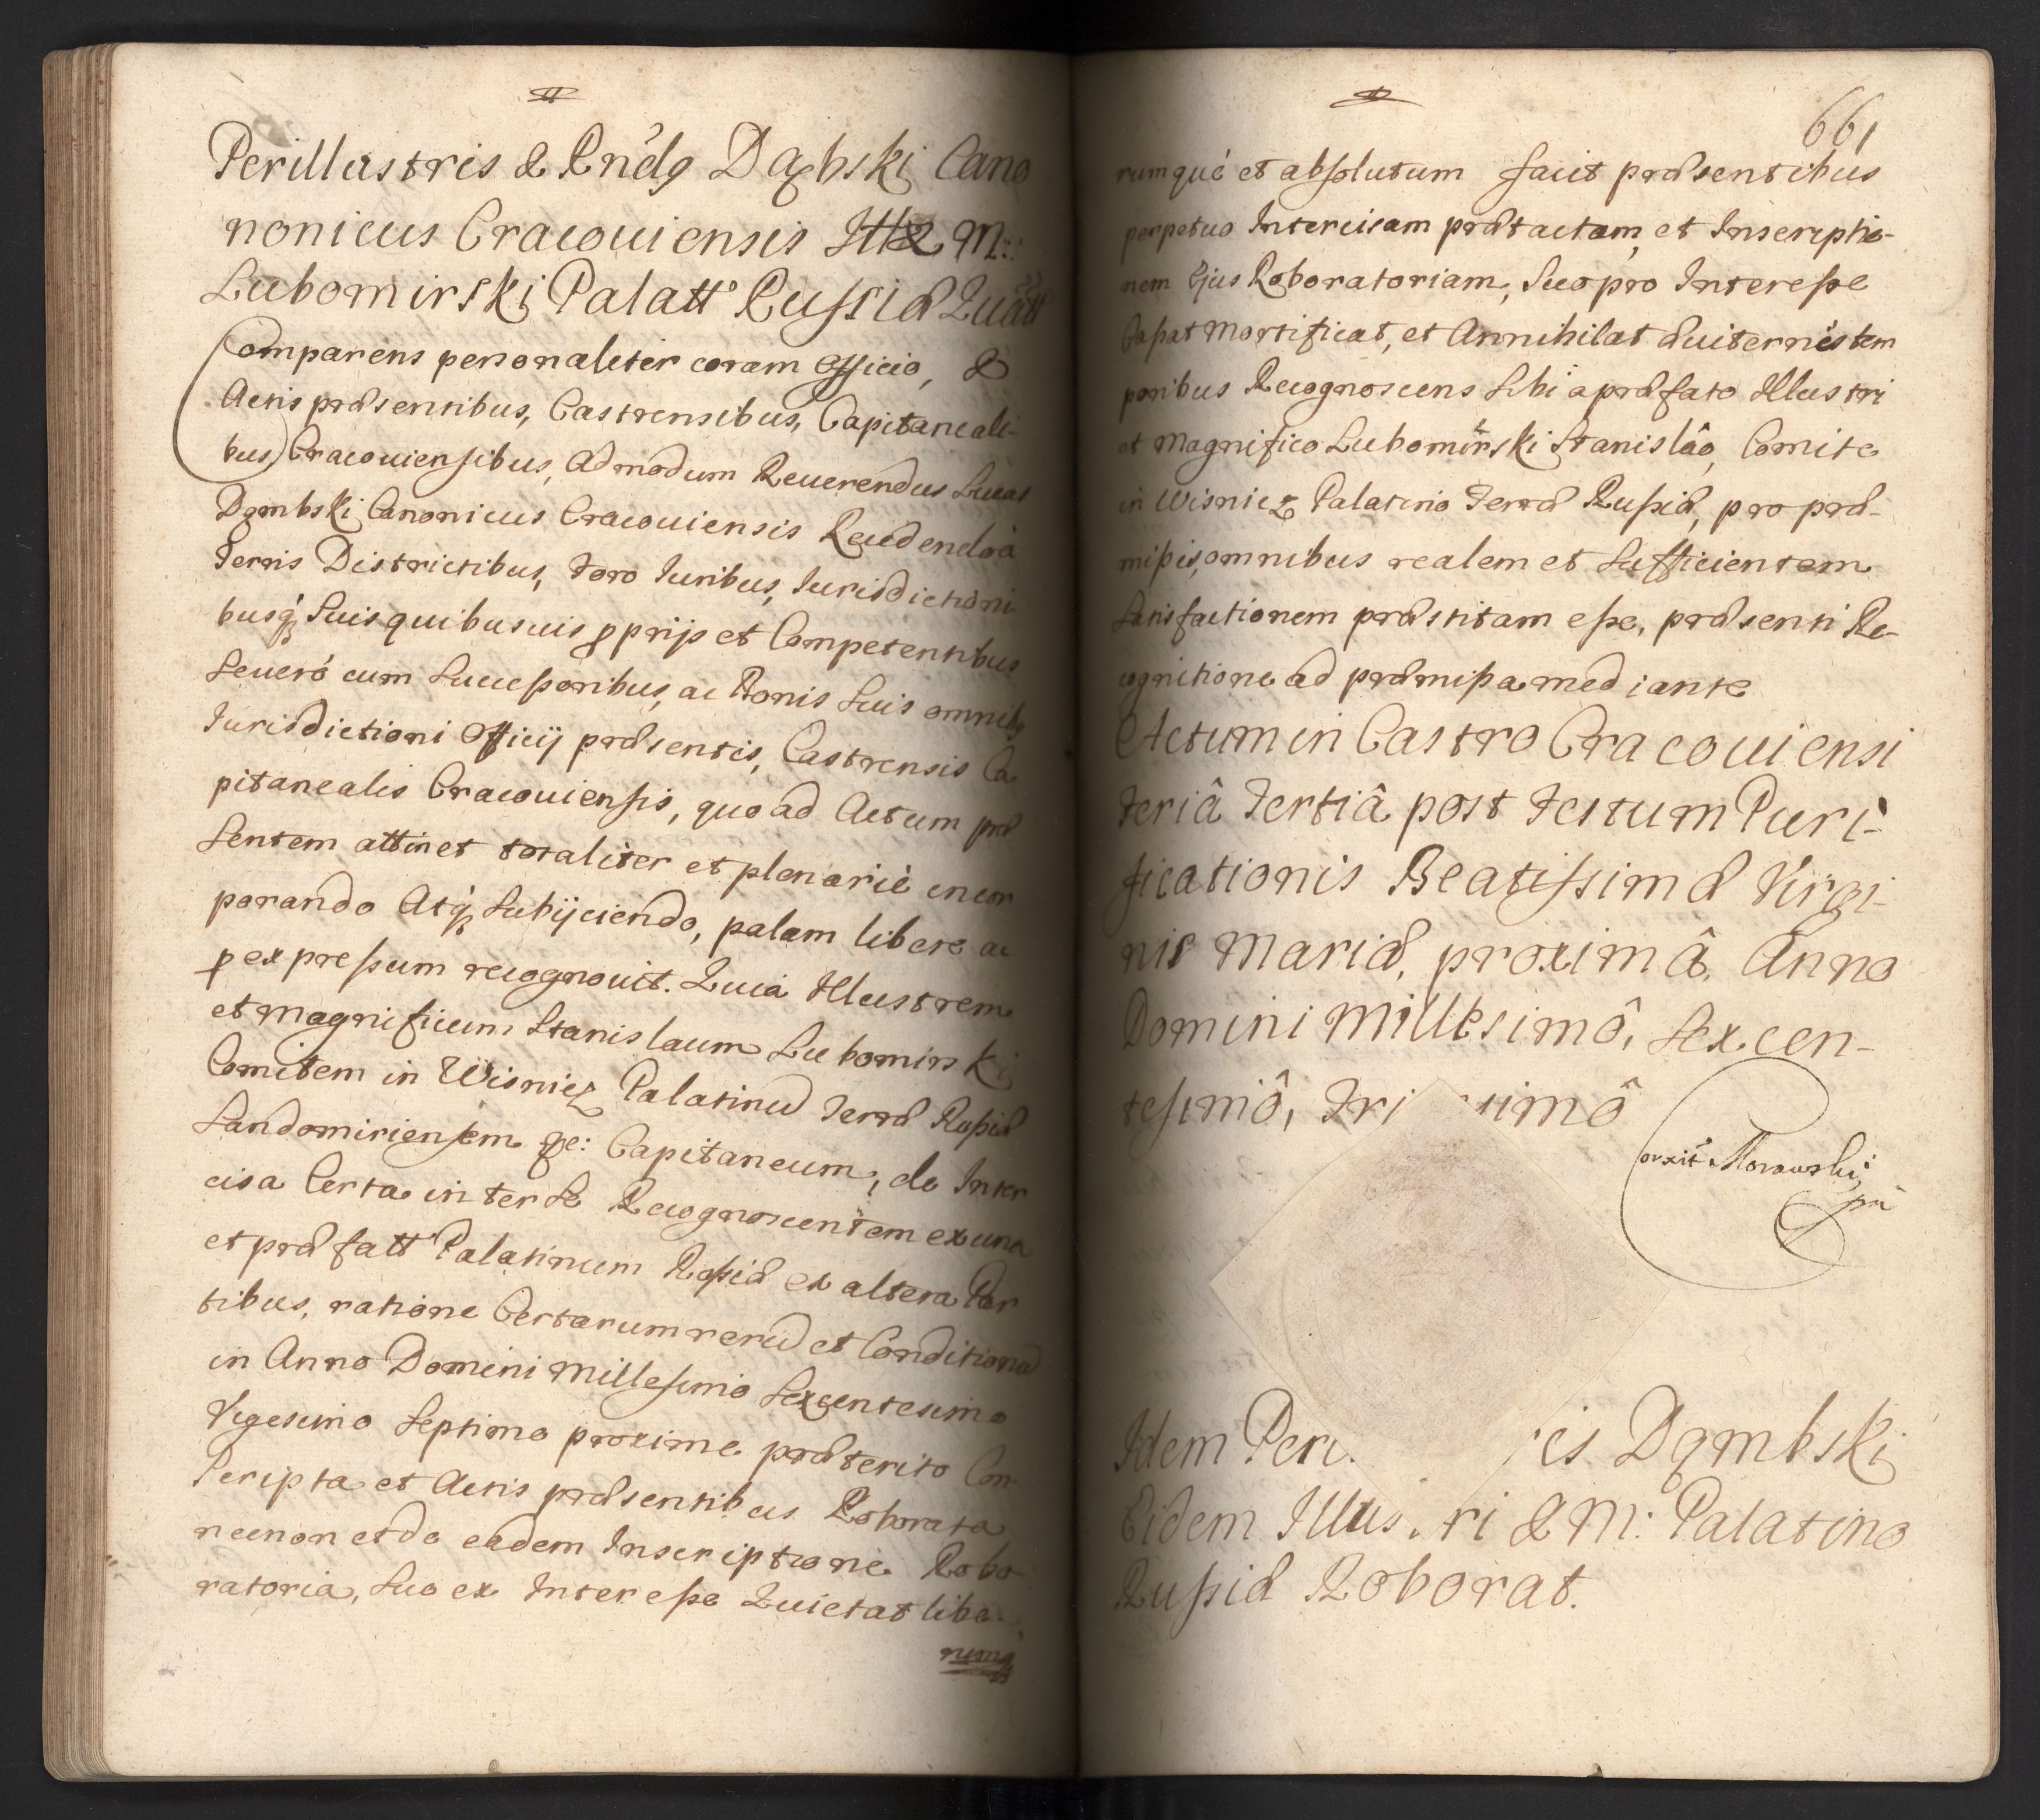 Perillustris & Rndg Dąbski Cano
nonicus Cracouiensis Ill& M:
Lubomirski Palatt Russiæ Quâtt
Comparens personaliter coram Officio, &
Actis præsentibus, Castrensibus, Capitaneali-
bus, Cracouiensibus, Admodum Reuerendus Lucas
Dąmbski Canonicus Cracouiensis Recedendo à
Terris Districtibus, Foro Iuribus, Iurisdictioni
busq₃ Suis quibusuis ꝓprijs et Competentibus
Seueró cum Successoribus, ac Bonis Suis omnibꝫ
Iurisdictioni Officij præsentis, Castrensis Ca
pitanealis Cracouiensis, quo ad Actum præ
sentem attinet totaliter et plenariè incor
porando Atq₃ Subijciendo, palam libere ac
ꝑ expressum recognouit. Quia Illustrem
et Magnificum Stanislaum Lubomirski
Comitem in Wisnicz Palatinũ Terræ Russiæ
Sandomiriensem &c: Capitaneum, de Inter
cisa Certa inter Se Recognoscentem ex una
et præfatt Palatinum Russiæ ex altera Par
tibus, ratione Certarum rerũ et Conditionũ
in Anno Domini Millesimo Sexcentesimo
Vigesimo Septimo proxime præterito Con-
scripta et Actis præsentibus Roborata
necnon et de eadem Inscriptione Robo-
ratoria, Suo ex Interesse Quietat libe-
rumq₃
661
rumqué et absolutum facit præsentibus
perpetuo Intercisam prætactam, et Inscriptio-
nem Ejus Roboratoriam, Suo pro Interesse
Cassat Mortificat, et Annihilat æuiternis tem
poribus Recognoscens Sibi a præfato Illustri
et Magnifico Lubomirski Stanislâo, Comite
in Wisnicz Palatino Terræ Russiæ, pro præ-
missis, omnibus realem et Sufficientem
Satisfactionem præstitam esse, præsenti Re-
cognitione ad præmissa mediante
Actum in Castro Cracouiensi
Feriâ Tertiâ post Festum Puri-
ficationis Beatissimæ Virgi-
nis Mariæ, proximâ, Anno
Domini Millesimô, Sexcen-
tesimô, Tri simô
Idem Peri is Dąmbski
Eidem Illustri & M: Palatino
Russiæ Roborat.